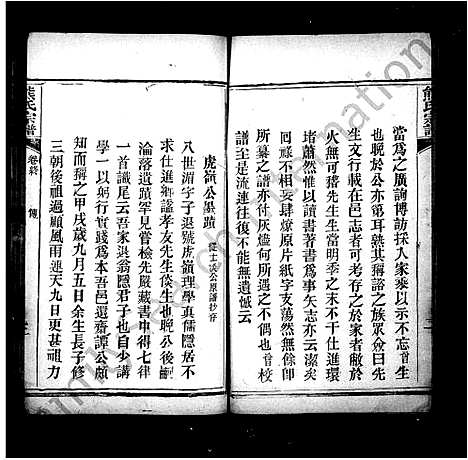 熊氏宗譜
當爲之廣詢博訪採入家乘以示不忘首生
也晚於公亦第耳熟其稱諮之族眾僉曰先
生文行載在邑志者可考存之於家者敝於
火無可稽先生生當明季之末不干仕進環
堵蕭然惟以讀書著書爲事矢志亦云潔矣
回祿不相妄肆燎原片紙字亥蕩然無餘卽
所纂之譜亦付灰燼何所遇之不偶也首校
譜至是流連往復不能無遺憾云
虎嶺公墨蹟
從士洪公原譜抄存
八世湄字子退號虎嶺理學眞儒隱居不
求仕進鄉諡孝友先生倓生也晚公後嗣
淪落遺蹟罕見嘗檢先嚴藏書中得七律
一首識尾云吾家退翁隱君子也自少講
學一以躬行實踐爲本吾邑還齋譚公頗
知而稱之甲戌歲九月五日生余長子修
三朝後祖過顧風雨連天九日更甚祖力
熊氏宗譜
卷終
傳